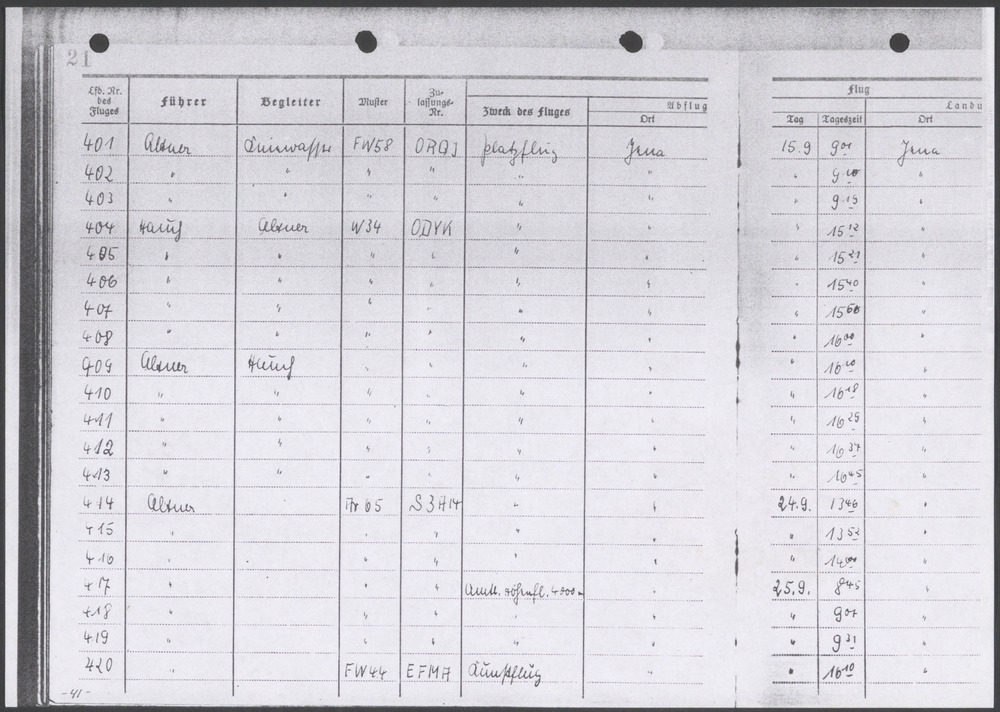 21
Lfd. Nr. des Fluges Führer Begleiter Muster Zu- lassungs- Nr. Zweck des Fluges Abflug Ort Flug Tag Tageszeit Landu Ort
401 Altner FW58 ORQJ Platzflug Jena 15.9 9 01 Jena
402 " " " " " " " 9 10 "
403 " " " " " " " 9 15 "
404 Hauß Altner W34 ODYK " " " 15 12 "
405 " " " " " " " 15 21 "
406 " " " " " " " 15 40 "
407 " " " " " " " 15 50 "
408 " " " " " " " 16 00 "
409 Altner Hauß " " " " " 16 10 "
410 " " " " " " " 16 18 "
411 " " " " " " " 16 29 "
412 " " " " " " " 16 37 "
413 " " " " " " " 16 45 "
414 Altner Ar 65 S3A14 " " 24.9. 13 46 "
415 " " " " " " 13 52 "
416 " " " " " 14 00 "
417 " " " 4000 " 25.9. 8 45 "
418 " " " " " " 9 07 "
419 " " " " " " 9 31 "
420 " FW44 EFMA Kunstflug " " 16 10 "
-41-